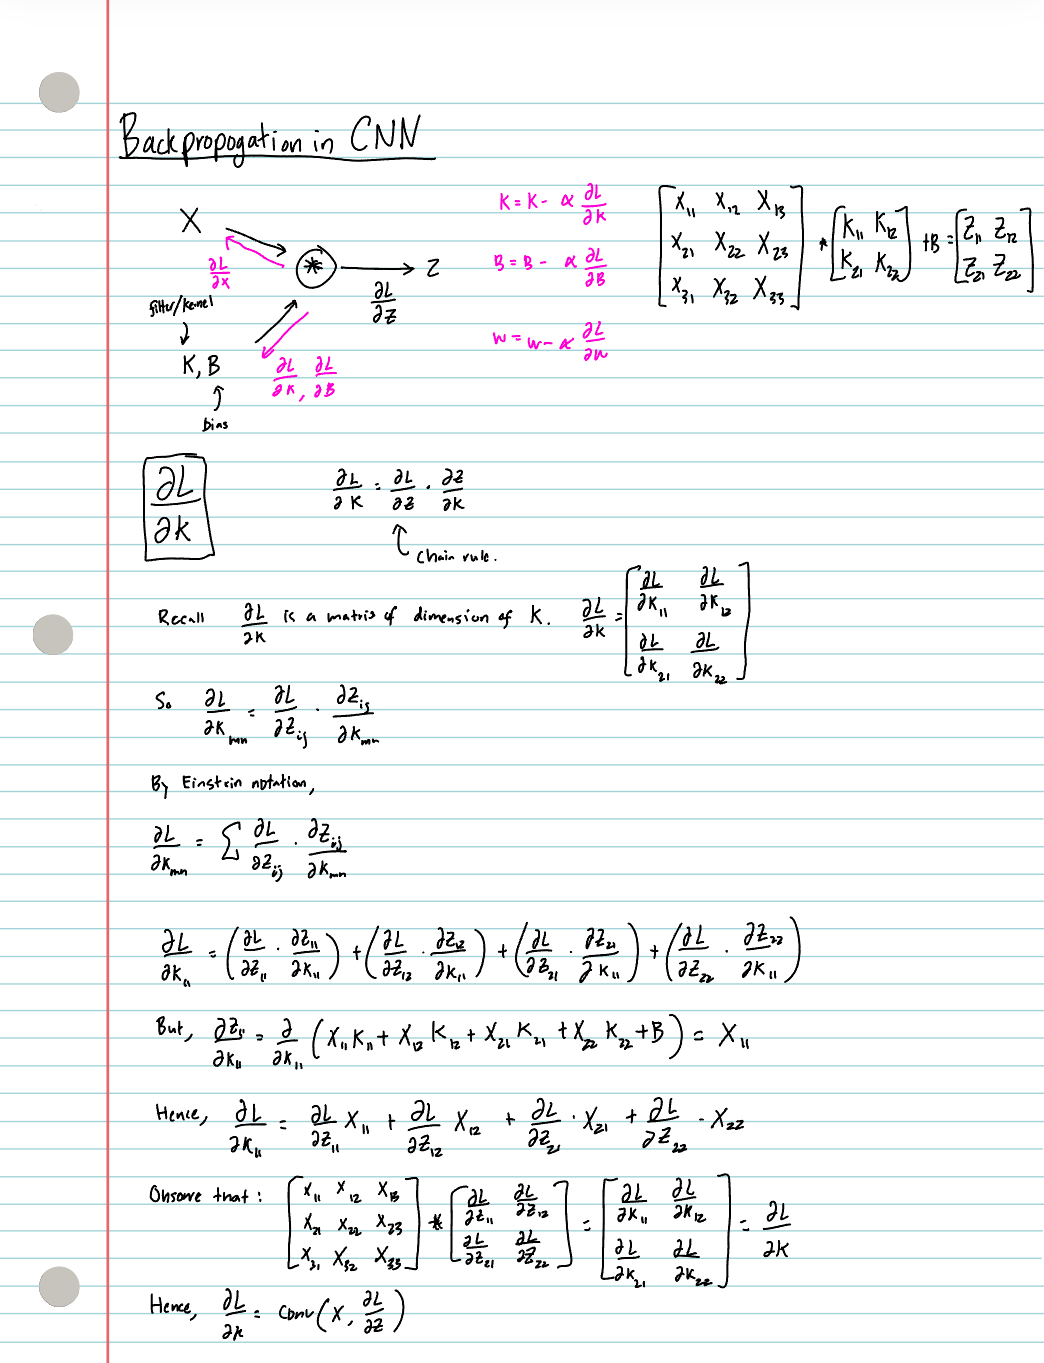 Backpropogation in CNN
X
K = K - α ∂L/∂K
[X₁₁ X₁₂ X₁₃; X₂₁ X₂₂ X₂₃; X₃₁ X₃₂ X₃₃] * [K₁₁ K₁₂; K₂₁ K₂₂] + B = [Z₁₁ Z₁₂; Z₂₁ Z₂₂]
∂L/∂X
* → Z
∂L/∂Z
B = B - α ∂L/∂B
filter/kernel
K, B
∂L/∂K, ∂L/∂B
w = w - α ∂L/∂w
bias
∂L/∂K
∂L/∂K = ∂L/∂Z · ∂Z/∂K
Chain rule.
Recall ∂L/∂K is a matrix of dimension of K. ∂L/∂K = [∂L/∂K₁₁ ∂L/∂K₁₂; ∂L/∂K₂₁ ∂L/∂K₂₂]
So ∂L/∂Kₘₙ = ∂L/∂Zᵢⱼ · ∂Zᵢⱼ/∂Kₘₙ
By Einstein notation,
∂L/∂Kₘₙ = ∑ ∂L/∂Zᵢⱼ · ∂Zᵢⱼ/∂Kₘₙ
∂L/∂K₁₁ = (∂L/∂Z₁₁ · ∂Z₁₁/∂K₁₁) + (∂L/∂Z₁₂ · ∂Z₁₂/∂K₁₁) + (∂L/∂Z₂₁ · ∂Z₂₁/∂K₁₁) + (∂L/∂Z₂₂ · ∂Z₂₂/∂K₁₁)
But, ∂Z₁₁/∂K₁₁ = ∂/∂K₁₁ (X₁₁K₁₁ + X₁₂K₁₂ + X₂₁K₂₁ + X₂₂K₂₂ + B) = X₁₁
Hence, ∂L/∂K₁₁ = ∂L/∂Z₁₁ X₁₁ + ∂L/∂Z₁₂ X₁₂ + ∂L/∂Z₂₁ · X₂₁ + ∂L/∂Z₂₂ · X₂₂
Observe that: [X₁₁ X₁₂ X₁₃; X₂₁ X₂₂ X₂₃; X₃₁ X₃₂ X₃₃] * [∂L/∂Z₁₁ ∂L/∂Z₁₂; ∂L/∂Z₂₁ ∂L/∂Z₂₂] = [∂L/∂K₁₁ ∂L/∂K₁₂; ∂L/∂K₂₁ ∂L/∂K₂₂] = ∂L/∂K
Hence, ∂L/∂K = Conv(X, ∂L/∂Z)